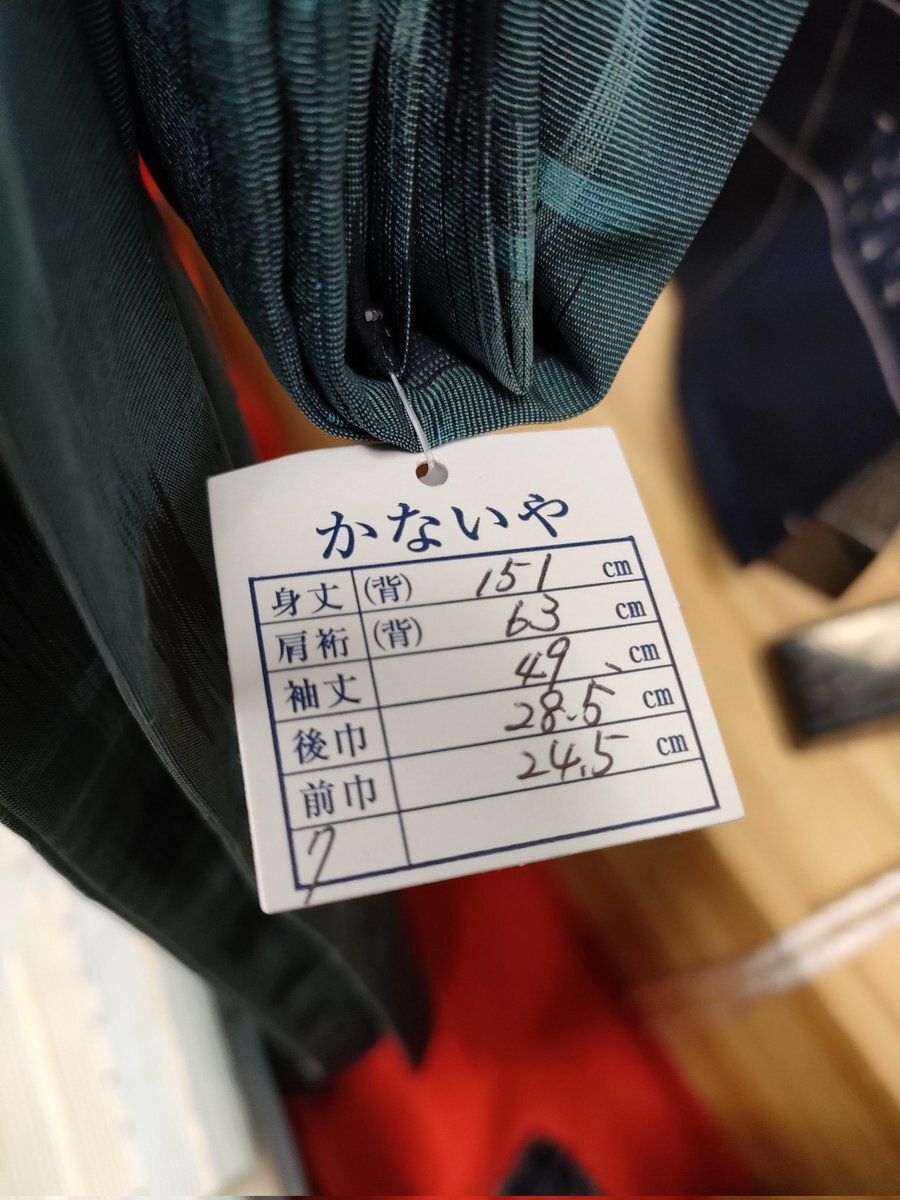 かないや
身丈 (背) 151 cm
肩裄 (背) 63 cm
袖丈 49 cm
後巾 28.5 cm
前巾 24.5 cm